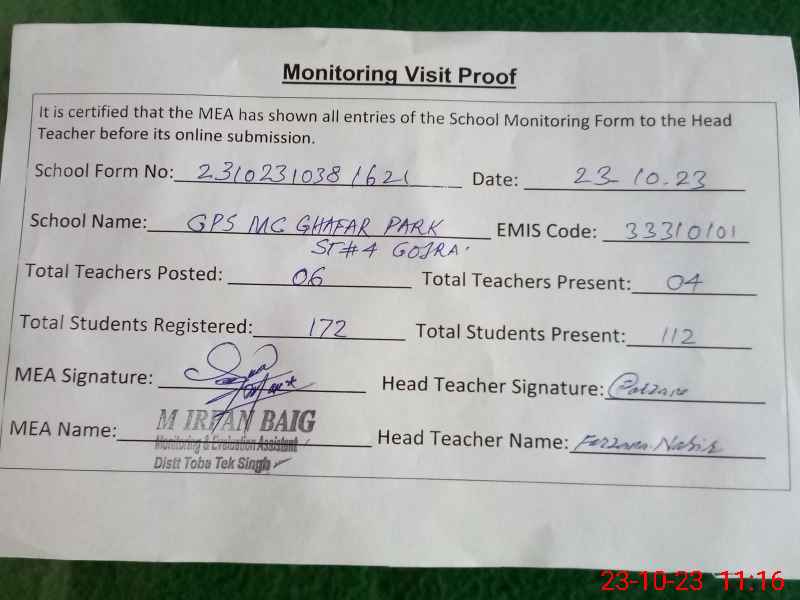 Monitoring Visit Proof
It is certified that the MEA has shown all entries of the School Monitoring Form to the Head
Teacher before its online submission.
School Form No: 2310231038 1621 Date: 23-10.23
School Name: GPS MC GHAFAR PARK EMIS Code: 33310101
ST#4 GOJRA.
Total Teachers Posted: 06 Total Teachers Present: 04
Total Students Registered: 172 Total Students Present: 112
MEA Signature: Head Teacher Signature:
MEA Name: M IRFAN BAIG Head Teacher Name: Farzana Nabik
Monitoring & Evaluation Assistant
Distt Toba Tek Singh
23-10-23 11:16